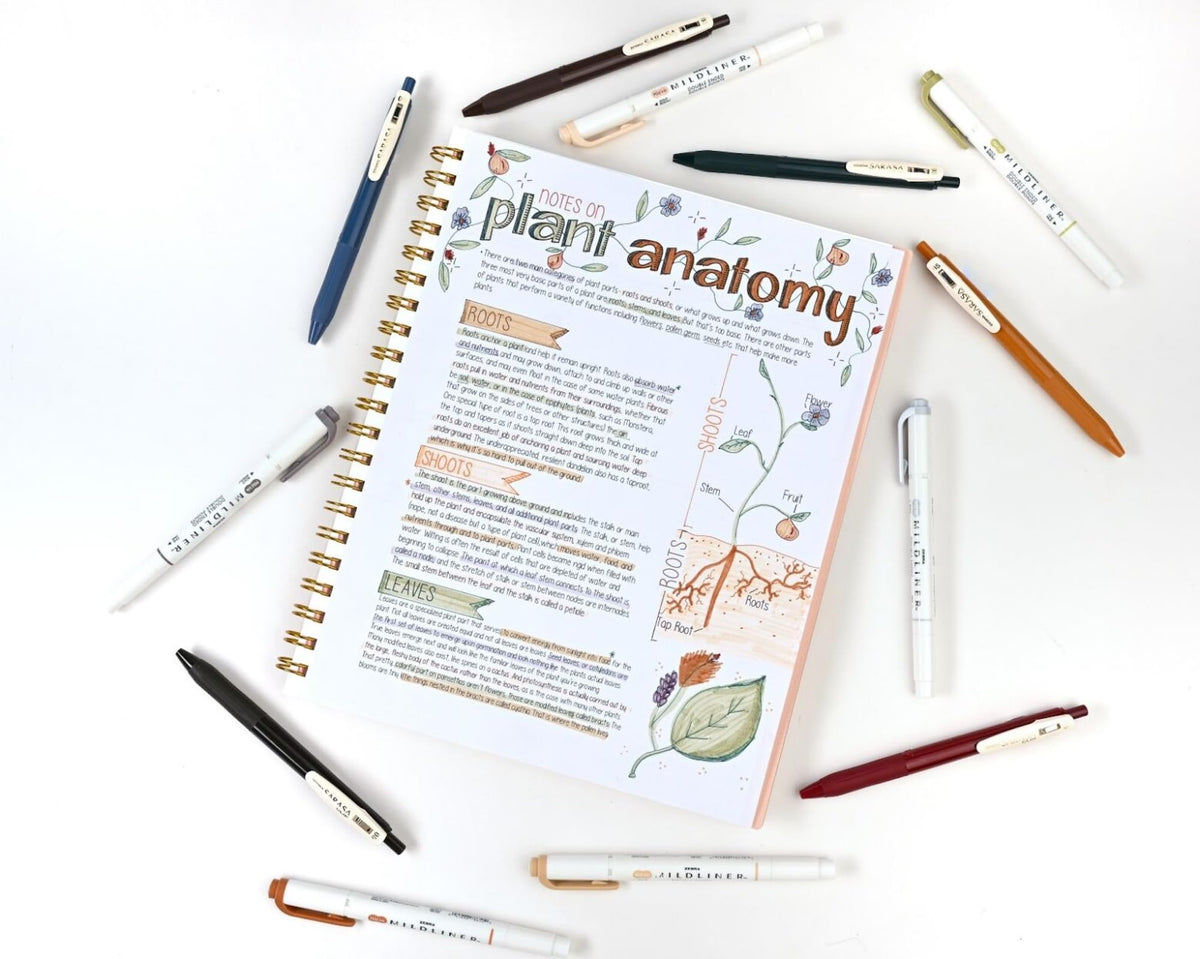 NOTES ON
plant anatomy
• There are two main categories of plant parts- roots and shoots, or what grows up and what grows down. The
three most very basic parts of a plant are roots, stems, and leaves. But that's too basic. There are other parts
of plants that perform a variety of functions including flowers, pollen, germ, seeds etc. that help make more
plants.
ROOTS
Roots anchor a plant and help it remain upright. Roots also absorb water*
and nutrients, and may grow down, attach to and climb up walls or other
surfaces, and may even float in the case of some water plants. Fibrous
roots pull in water and nutrients from their surroundings, whether that
be soil, water, or in the case of epiphytes (plants, such as Monstera,
that grow on the sides of trees or other structures) the air.
One special type of root is a tap root. This root grows thick and wide at
the top and tapers as it shoots straight down deep into the soil. Tap
roots do an excellent job of anchoring a plant and sourcing water deep
underground. The underappreciated, resilient dandelion also has a taproot,
which is why it's so hard to pull out of the ground!
SHOOTS
The shoot is the part growing above ground and includes the stalk or main
* stem, other stems, leaves, and all additional plant parts. The stalk, or stem, help
hold up the plant and encapsulate the vascular system, xylem and phloem
(nope, not a disease but a type of plant cell) which moves water, food, and
nutrients through and to plant parts. Plant cells become rigid when filled with
water. Wilting is often the result of cells that are depleted of water and
beginning to collapse. The point at which a leaf stem connects to the shoot is
called a node, and the stretch of stalk or stem between nodes are internodes.
The small stem between the leaf and the stalk is called a petiole.
LEAVES
Leaves are a specialized plant part that serves to convert energy from sunlight into food for the
plant. Not all leaves are created equal and not all leaves are leaves. Seed leaves, or cotyledons are
the first set of leaves to emerge upon germination and look nothing like the plants actual leaves.
True leaves emerge next and will look like the familiar leaves of the plant you're growing.
Many modified leaves also exist, like spines on a cactus. And photosynthesis is actually carried out by
the large, fleshy body of the cactus rather than the leaves, as is the case with many other plants.
That pretty, colorful part on poinsettias aren't flowers, those are modified leaves called bracts. The
blooms are tiny little things nestled in the bracts are called cyathia. That is where the pollen lives.
SHOOTS
Flower
Leaf
Stem
Fruit
ROOTS
Roots
Tap Root
SARASA
MILDLINER
DOUBLE ENDED
SARASA
SARASA
MILDLINER
DOUBLE ENDED
SARASA
MILDLINER
MILDLINER
SARASA
ZEBRA
MILDLINER
ZEBRA
MILDLINER